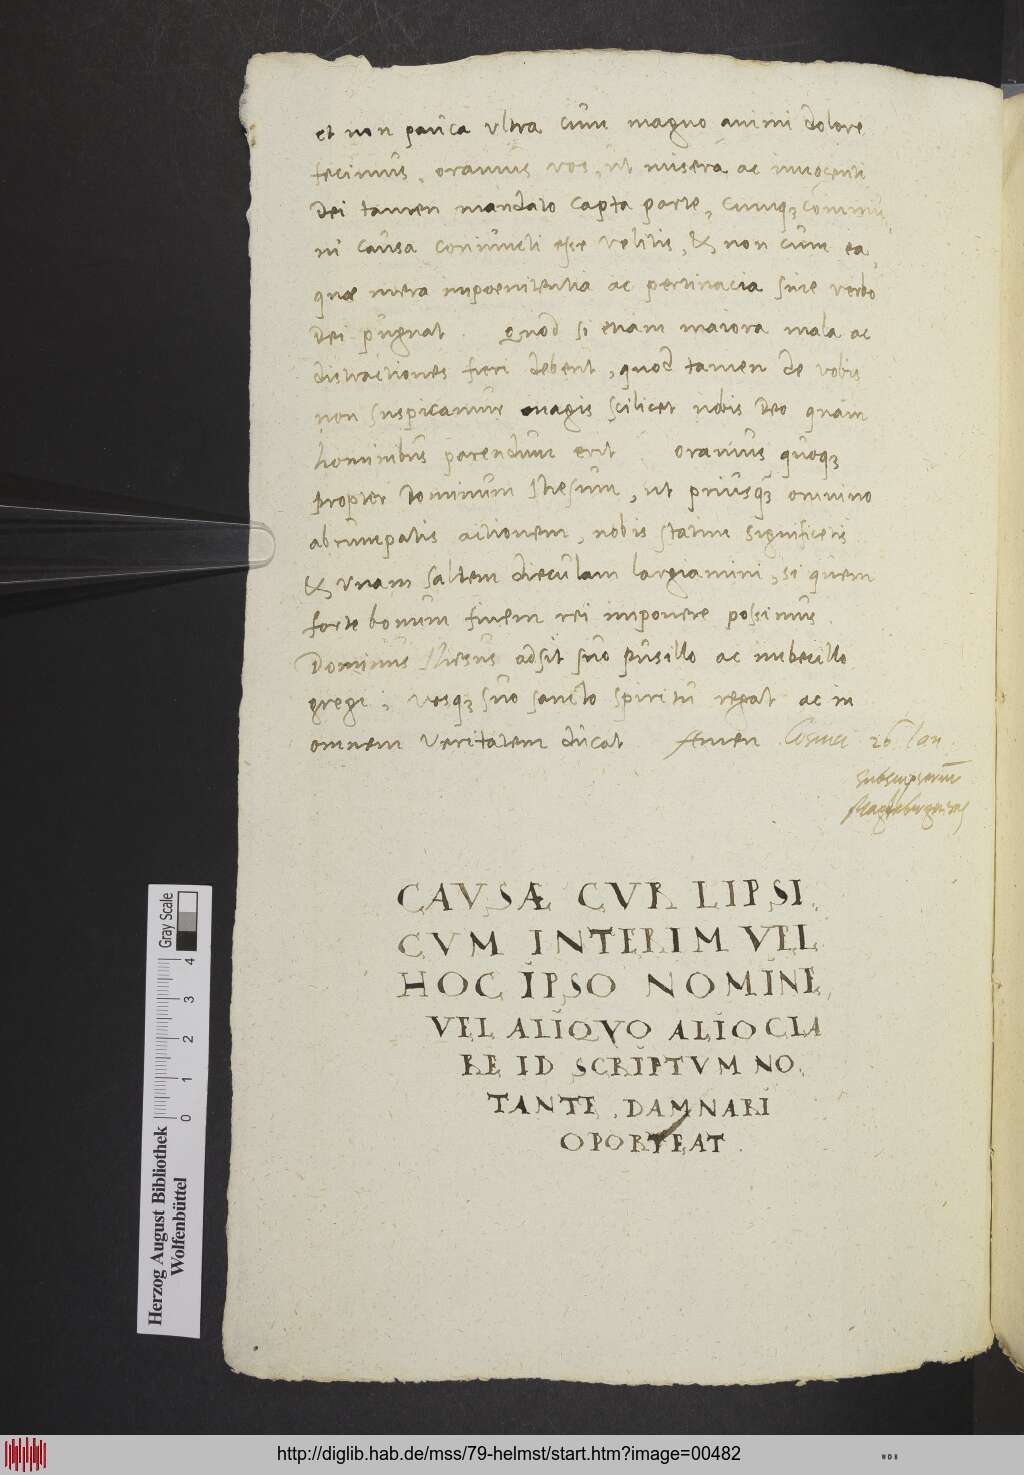 et non pauca ultra cum magno animi dolore
fecimus, oramus vos, ut miserâ ac innocenti
Dei tamen mandato capta parte, cumqꝫ commu
ni causa coniuncti esse velitis, & non cum ea,
quæ mera impoenitentia ac pertinacia sine verbo
Dei pugnat. Quod si etiam maiora mala ac
distractiones fieri debent, quod tamen de vobis
non suspicamur magis scilicet nobis Deo quàm
hominibus parendum erit. oramus quoqꝫ
propter Dominum Ihesum, ut priusqꝫ omnino
abrumpatis actionem, nobis statim significetis
& unam saltem dieculam largiamini, si quem
forte bonum finem rei imponere possimus.
Dominus Ihesus adsit suo pusillo ac imbecillo
gregi, vosqꝫ suo sancto spiritu regat ac in
omnem veritatem ducat Amen Cosuici 26 Ian
subscripserunt
Magdeburgenses
CAUSÆ CUR LIPSI
CVM INTERIM VEL
HOC IPSO NOMINE,
VEL ALIQVO ALIO CLA
RE ID SCRIPTVM NO
TANTE, DAMNARI
OPORTEAT.
Herzog August Bibliothek
Wolfenbüttel
Gray Scale
0 1 2 3 4
http://diglib.hab.de/mss/79-helmst/start.htm?image=00482
WDB